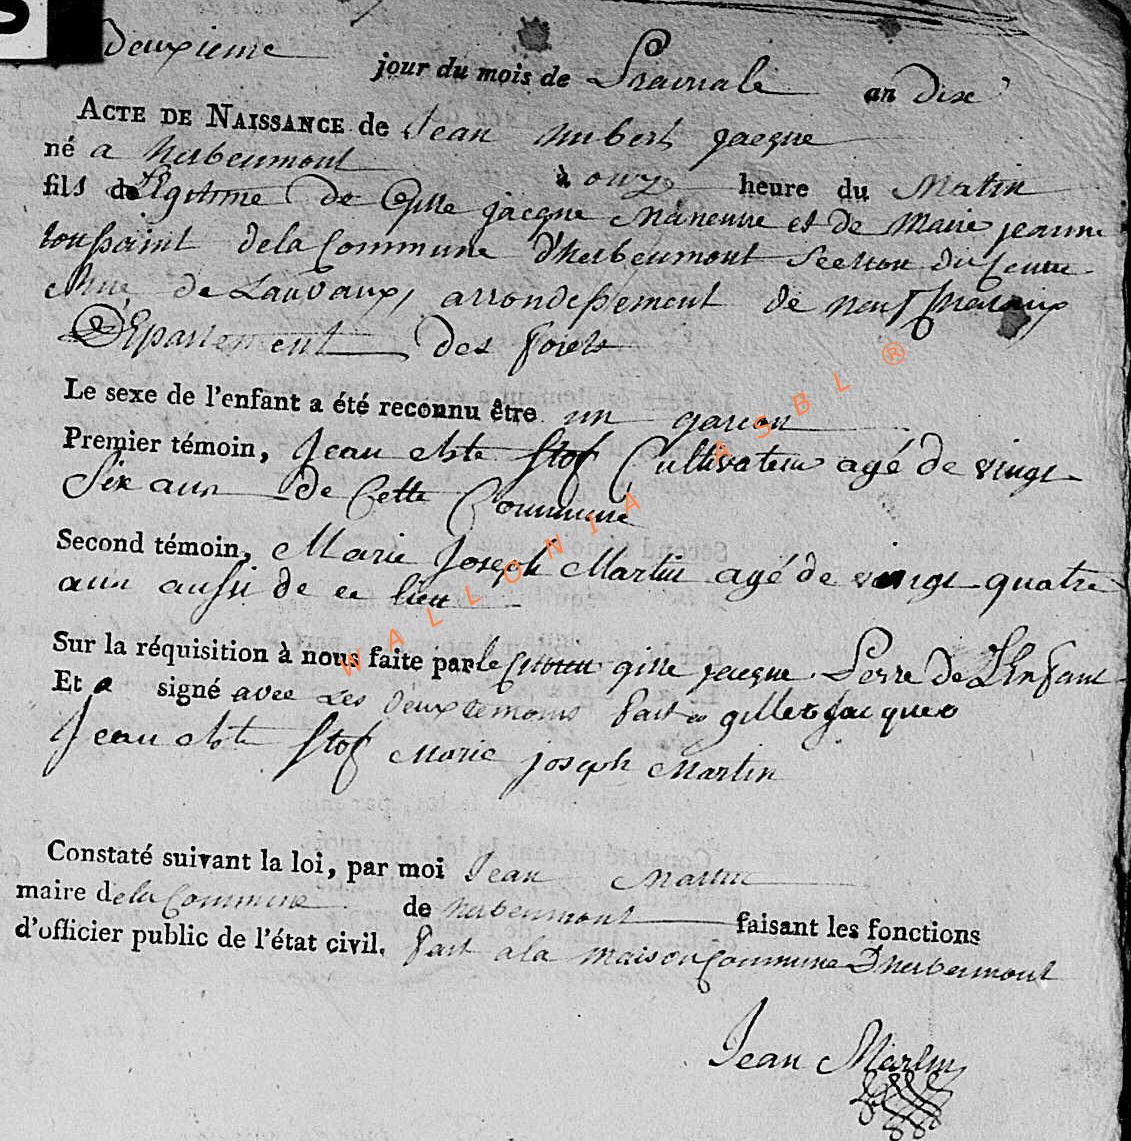 S
Deuxieme jour du mois de Prairiale an dix
ACTE DE NAISSANCE de Jean hubert jacque
né a herbeumont à onze heure du Matin
fils de legitime de Gille jacque Maneuvre et de Marie jeanne
toussaint de la Commune d'herbeumont Section du Centre
de Lauvaux, arrondessement de neufchateaux
Département des forets
Le sexe de l'enfant a été reconnu être un garcon
Premier témoin, Jean Bte Stof Cultivateur agé de vingt
Six ans de Cette Commune
Second témoin, Marie Joseph Martin agé de vingt quatre
ans aussi de ce lieu
Sur la réquisition à nous faite par le Citoien gille jacque Perre de L'Enfant
Et a signé avec Les deux temoins fait gille jacque
Jean Bte Stof Marie joseph Martin
Constaté suivant la loi, par moi Jean Martin
maire de la Commune de herbeumont faisant les fonctions
d'officier public de l'état civil. fait a la maison Commune D'herbeumont
Jean Martin
WALLONIA ASBL ®